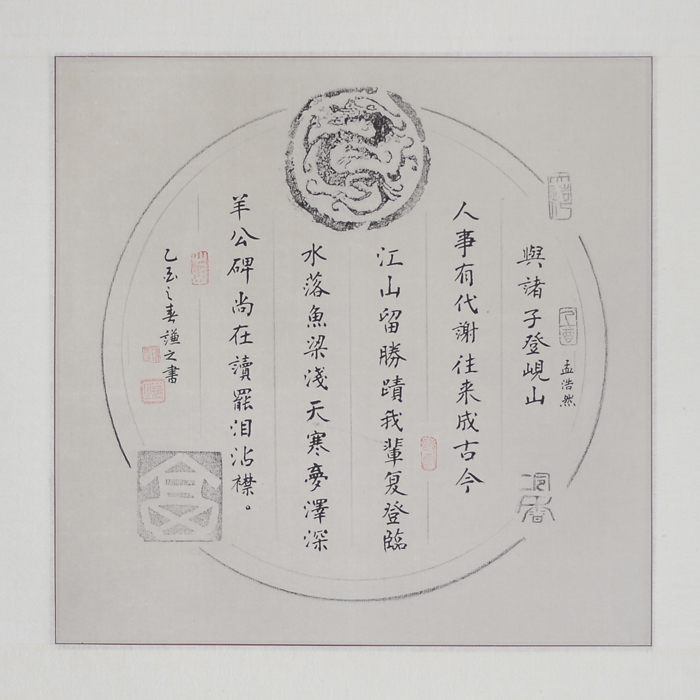 與諸子登峴山
孟浩然
人事有代謝往来成古今
江山留勝蹟我輩复登臨
水落魚梁淺天寒夢澤深
羊公碑尚在讀罷泪沾襟。
乙酉之春謙之書